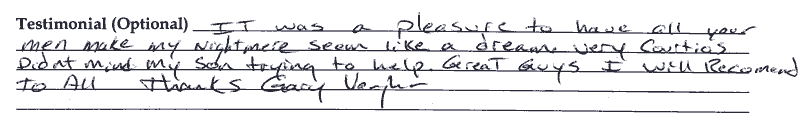 Testimonial (Optional) IT was a pleasure to have all your
men make my Nightmere seem like a dream. very Courtios
Didnt mind my Son trying to help. Great Guys I will Recomend
To All Thanks Gary